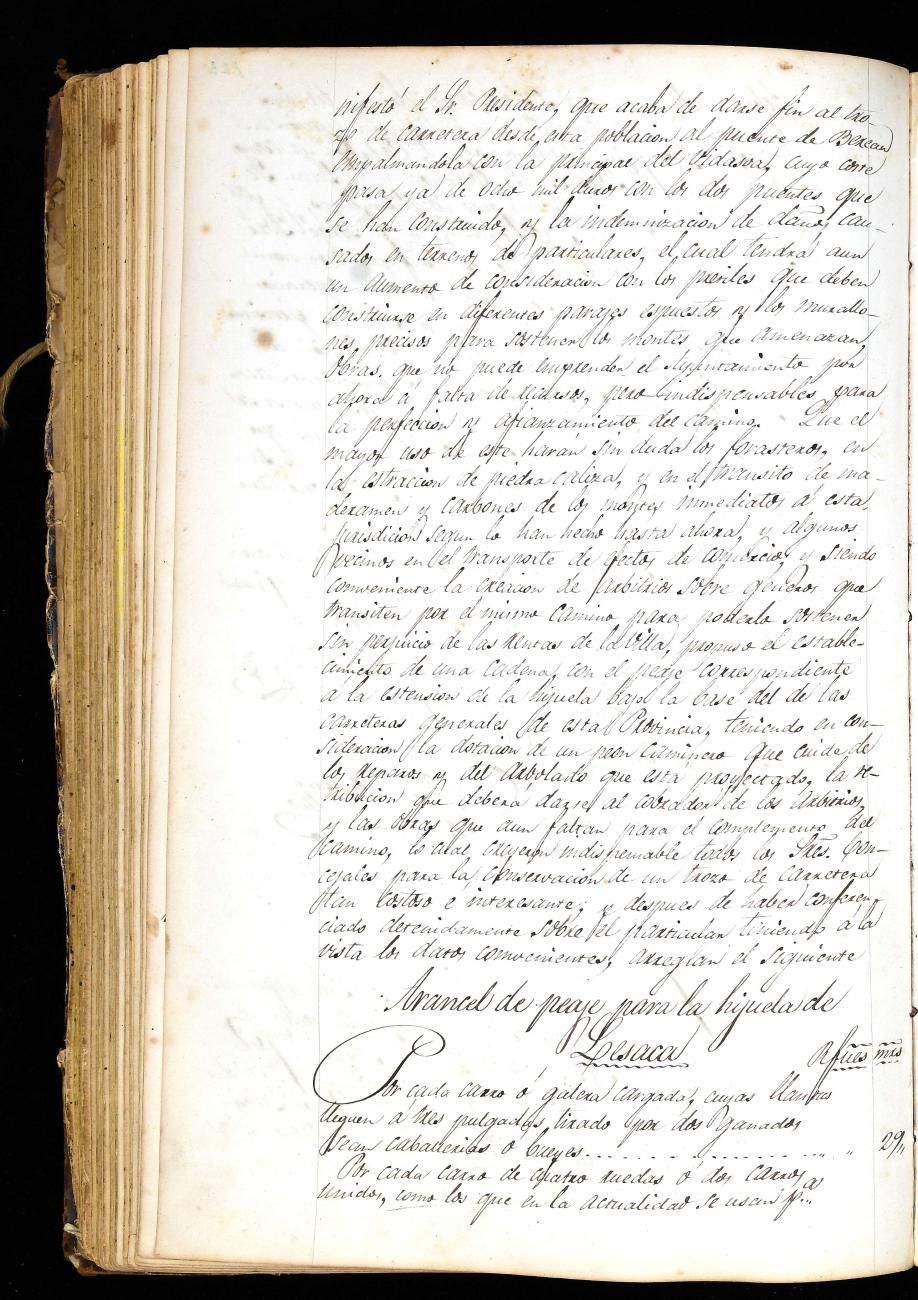 nifestó el Sr. Presidente, que acaba de darse fin al tro-
zo de carretera desde esta poblacion al puente de Berean
empalmandola con la principal del Vidasoa, cuyo corre
pasa ya de ocho mil duros con los dos puentes que
se han construido, y la indemnizacion de daños cau-
sados en terrenos de particulares, el cual tendrá aun
un aumento de consideracion con los pretiles que deben
construirse en diferentes parajes espuestos y los murallo-
nes precisos para sostener los montes que amenazan,
obras que no puede emprender el Ayuntamiento por
ahora á falta de recursos, pero indispensables para
la perfeccion y afianzamiento del camino. Que el
mayor uso de este harán sin duda los forasteros, en
la estraccion de piedra caliza, y en el transito de ma-
deramen y carbones de los montes inmediatos á esta
jurisdicion segun lo han hecho hasta ahora, y algunos
vecinos en el transporte de efectos de comercio, y siendo
conveniente la creacion de arbitrios sobre generos que
transiten por el mismo camino para poderlo sostener
sin perjuicio de las rentas de la villa, propuso el estable-
cimiento de una cadena, con el peaje correspondiente
á la estension de la hijuela bajo la base del de las
carreteras generales de esta Provincia, teniendo en con-
sideracion la dotacion de un peon caminero que cuide de
los reparos y del arbolado que está proyectado, la re-
tribucion que deberá darse al cobrador de los arbitrios,
y las obras que aun faltan para el complemento del
camino, lo cual creyeron indispensable todos los Sres. Con-
cejales para la conservacion de un trozo de carretera
tan costoso é interesante; y despues de haber conferen-
ciado detenidamente sobre el particular teniendo á la
vista los datos convenientes, arreglan el siguiente
Arancel de peaje para la hijuela de
Lesaca
Rs fues mrs
Por cada carro ó galera cargada, cuyas llantas
lleguen á tres pulgadas, tirado por dos ganados
sean caballerias ó bueyes . . . . . . . . . . . . . . . . " 29"
Por cada carro de cuatro ruedas ó dos carros
unidos, como los que en la actualidad se usan pa